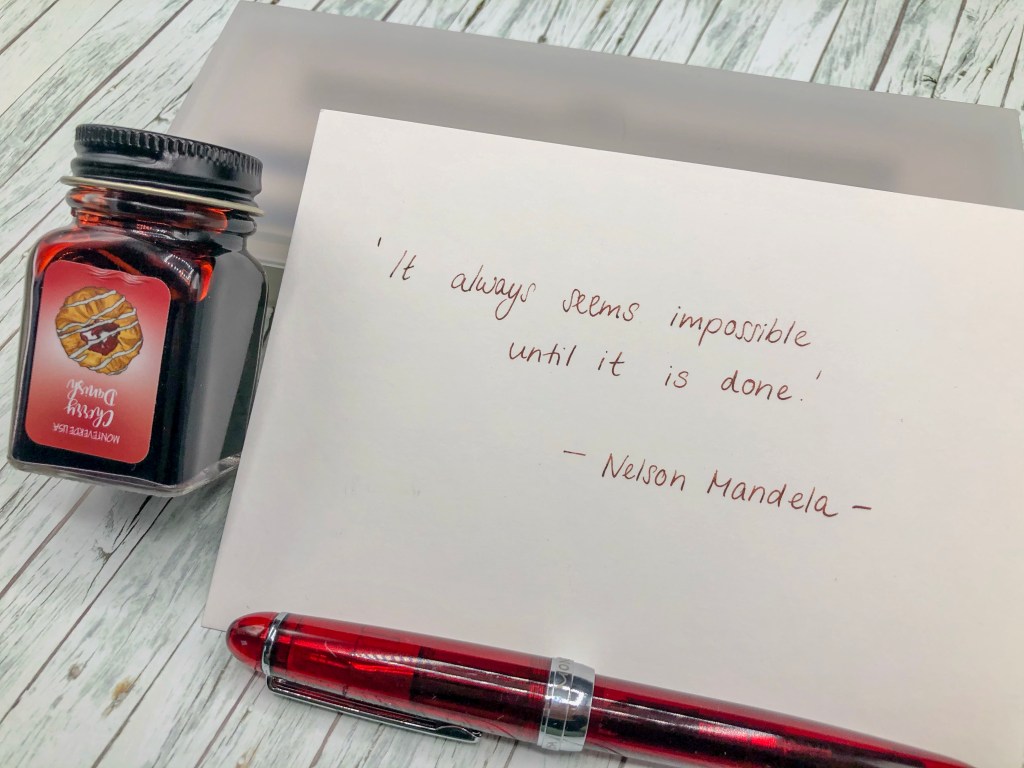 'It always seems impossible
until it is done.'
- Nelson Mandela -
MONTEVERDE USA
Cherry
Danish